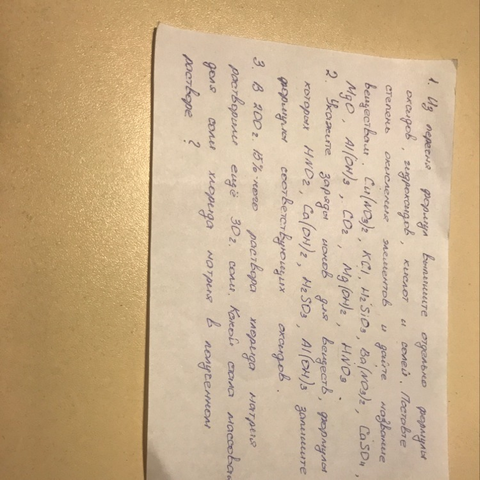 1. Из перечня формул выпишите отдельно формулы
оксидов, гидроксидов, кислот и солей. Поставьте
степень окисления элементов и дайте название
веществам. Cu(NO3)2, KCl, H2SiO3, Ba(NO3)2, CaSO4,
MgO, Al(OH)3, CO2, Mg(OH)2, HNO3.
2. Укажите заряды ионов для веществ, формулы
которых HNO2, Ca(OH)2, H2SO3, Al(OH)3 запишите
формулы соответствующих оксидов.
3. В 200г 15%-ного раствора хлорида натрия
растворили ещё 30г. соли. Какой стала массовая
доля соли хлорида натрия в полученном
растворе?